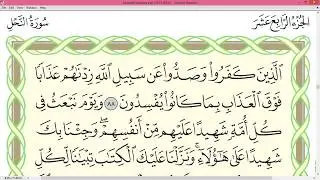 الجزء الرابع عشر
سورة النحل
الَّذِينَ كَفَرُوا وَصَدُّوا عَن سَبِيلِ اللَّهِ زِدْنَاهُمْ عَذَابًا
فَوْقَ الْعَذَابِ بِمَا كَانُوا يُفْسِدُونَ ٨٨ وَيَوْمَ نَبْعَثُ فِي
كُلِّ أُمَّةٍ شَهِيدًا عَلَيْهِم مِّنْ أَنفُسِهِمْ ۖ وَجِئْنَا بِكَ
شَهِيدًا عَلَىٰ هَٰؤُلَاءِ ۚ وَنَزَّلْنَا عَلَيْكَ الْكِتَابَ تِبْيَانًا لِّكُلِّ